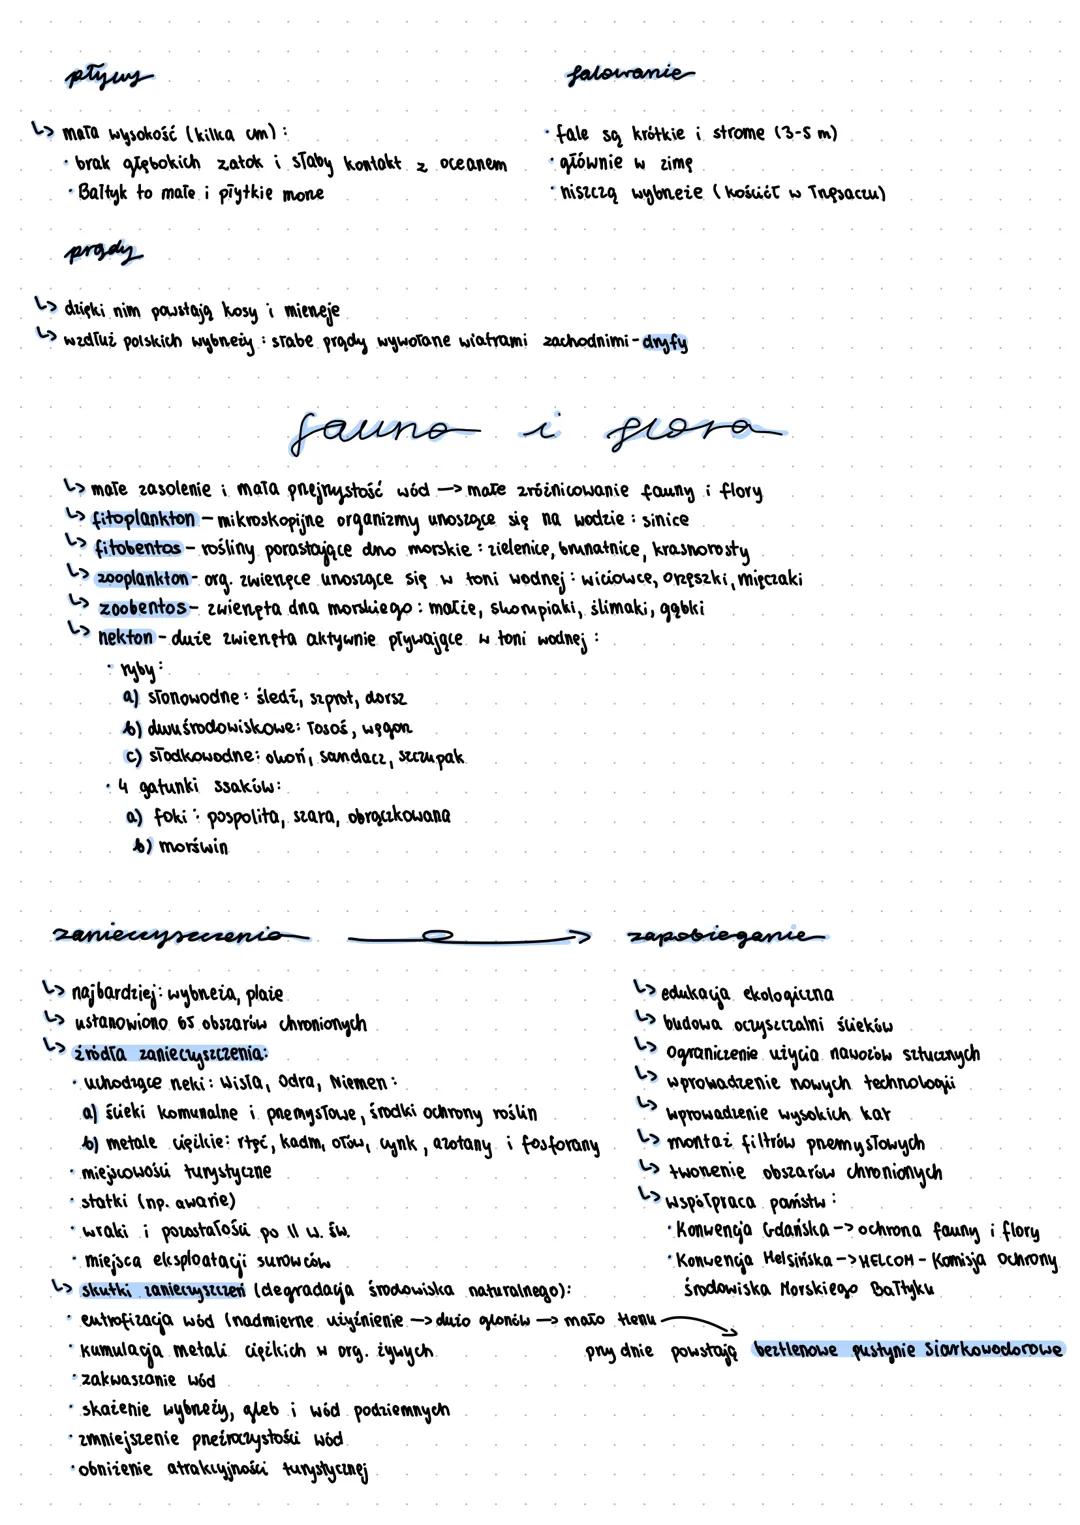 pływy
↳ mała wysokość (kilka cm):
· brak głębokich zatok i słaby kontakt z oceanem
· Bałtyk to małe i płytkie morze
falowanie
· fale są krótkie i strome (3-5 m)
· głównie w zimę
· niszczą wybrzeże (kościół w Trzęsaczu)
prądy
↳ dzięki nim powstają kosy i mierzeje
↳ wzdłuż polskich wybrzeży: słabe prądy wywołane wiatrami zachodnimi - dryfy
fauna i flora
↳ małe zasolenie i mała przejrzystość wód → małe zróżnicowanie fauny i flory
↳ fitoplankton - mikroskopijne organizmy unoszące się na wodzie: sinice
↳ fitobentos - rośliny porastające dno morskie: zielenice, brunatnice, krasnorosty
↳ zooplankton - org. zwierzęce unoszące się w toni wodnej: wiciowce, orzęski, mięczaki
↳ zoobentos - zwierzęta dna morskiego: małże, skorupiaki, ślimaki, gąbki
↳ nekton - duże zwierzęta aktywnie pływające w toni wodnej:
· ryby:
a) słonowodne: śledź, szprot, dorsz
b) dwuśrodowiskowe: łosoś, węgorz
c) słodkowodne: okoń, sandacz, szczupak
· 4 gatunki ssaków:
a) foki: pospolita, szara, obrączkowana
b) morświn
zanieczyszczenia → zapobieganie
↳ najbardziej: wybrzeża, plaże
↳ ustanowiono 65 obszarów chronionych
↳ źródła zanieczyszczenia:
· uchodzące rzeki: Wisła, Odra, Niemen:
a) ścieki komunalne i przemysłowe, środki ochrony roślin
b) metale ciężkie: rtęć, kadm, ołów, cynk, azotany i fosforany
· miejscowości turystyczne
· statki (np. awarie)
· wraki i pozostałości po II w. św.
· miejsca eksploatacji surowców
↳ skutki zanieczyszczeń (degradacja środowiska naturalnego):
· eutrofizacja wód (nadmierne użyźnienie → dużo glonów → mało tlenu → przy dnie powstają beztlenowe pustynie siarkowodorowe
· kumulacja metali ciężkich w org. żywych
· zakwaszanie wód
· skażenie wybrzeży, gleb i wód podziemnych
· zmniejszenie przeźroczystości wód
· obniżenie atrakcyjności turystycznej
↳ edukacja ekologiczna
↳ budowa oczyszczalni ścieków
↳ ograniczenie użycia nawozów sztucznych
↳ wprowadzenie nowych technologii
↳ wprowadzenie wysokich kar
↳ montaż filtrów przemysłowych
↳ tworzenie obszarów chronionych
↳ współpraca państw:
· Konwencja Gdańska → ochrona fauny i flory
· Konwencja Helsińska → HELCOM - Komisja Ochrony
Środowiska Morskiego Bałtyku